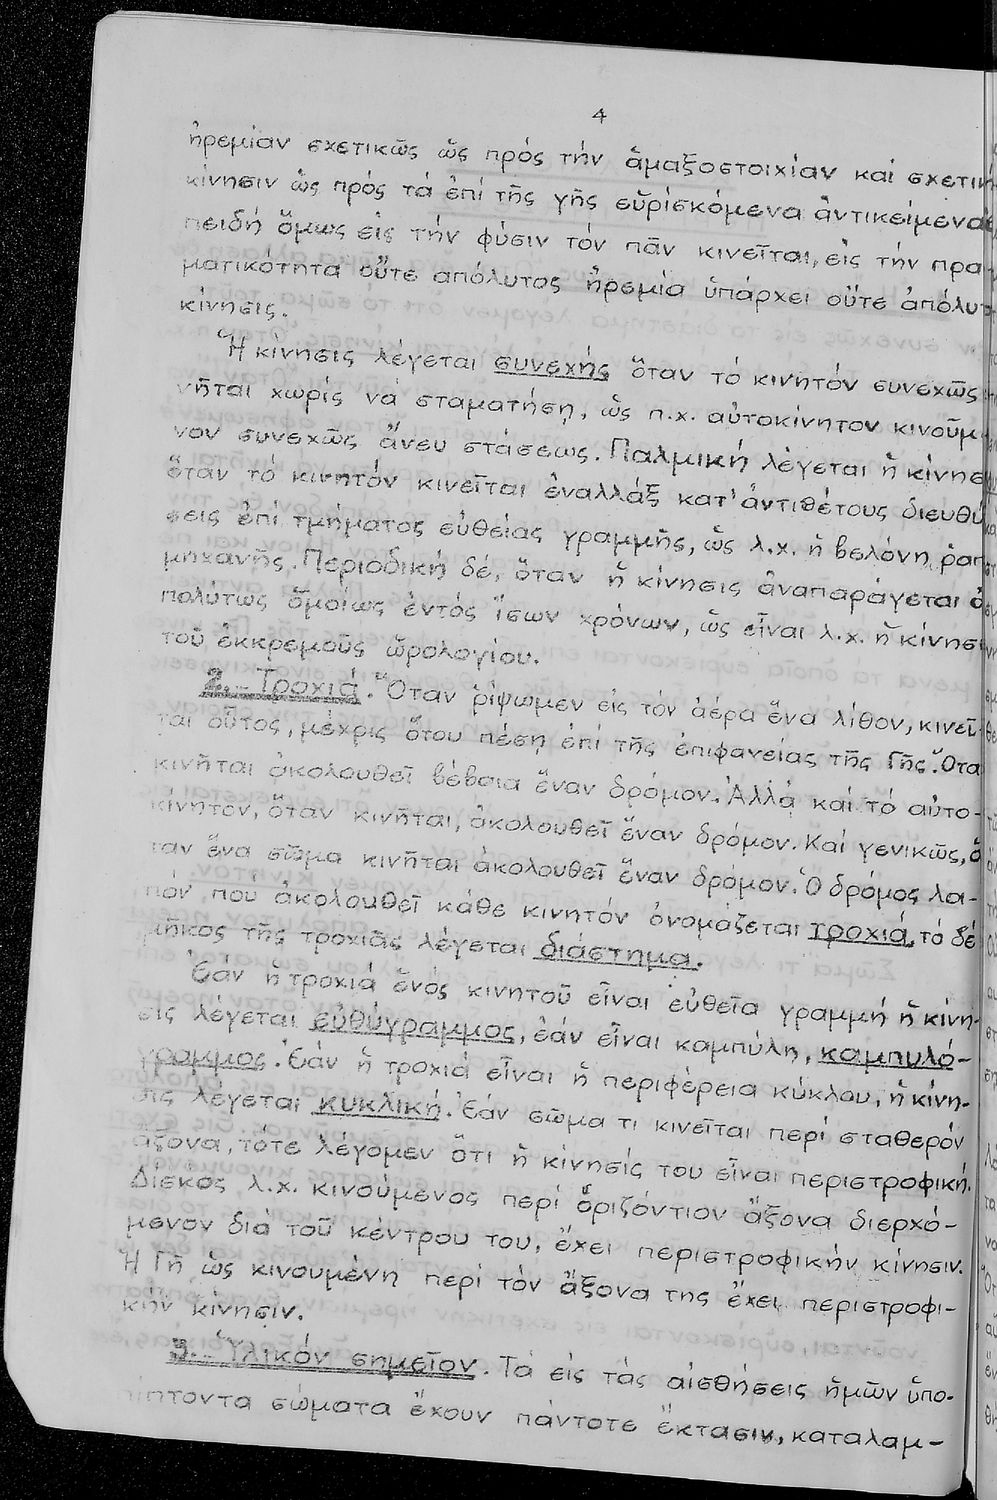 4
ἠρεμίαν σχετικῶς ὡς πρός τήν ἁμαξοστοιχίαν καί σχετικ
κίνησιν ὡς πρός τά ἐπί τῆς γῆς εὑρισκόμενα ἀντικείμενα.
πειδή ὅμως εἰς τήν φύσιν τόν πᾶν κινεῖται, εἰς τήν πρα
ματικότητα οὔτε απόλυτος ἠρεμία ὑπάρχει οὔτε ἀπόλυτ
κίνησις.
Ἡ κίνησις λέγεται συνεχής ὅταν τό κινητόν συνεχῶς
νῆται χωρίς νά σταματήση, ὡς π.χ. αὐτοκίνητον κινούμ
νον συνεχῶς ἄνευ στάσεως. Παλμική λέγεται ἡ κίνησ
ὅταν τό κινητόν κινεῖται ἐναλλάξ κατ' ἀντιθέτους διευθύ
σεις ἐπί τμήματος εὐθείας γραμμῆς, ὡς λ.χ. ἡ βελόνη ραπ
μηχανῆς. Περιοδική δέ, ὅταν ἡ κίνησις ἀναπαράγεται ἀ
πολύτως ὁμοίως ἐντός ἴσων χρόνων, ὡς εἶναι λ.χ. ἡ κίνησι
τοῦ ἐκκρεμοῦς ὡρολογίου.
2.- Τροχιά. Ὅταν ῥίψωμεν εἰς τόν ἀέρα ἕνα λίθον, κινεῖ-
ται οὗτος, μέχρις ὅτου πέση ἐπί τῆς ἐπιφανείας τῆς Γῆς. Ὅτα
κινῆται ἀκολουθεῖ βέβαια ἕναν δρόμον. Ἀλλά καί τό αὐτο-
κίνητον, ὅταν κινῆται, ἀκολουθεῖ ἕναν δρόμον. Καί γενικῶς, ὅ
ταν ἕνα σῶμα κινῆται ἀκολουθεῖ ἕναν δρόμον. Ὁ δρόμος λοι-
πόν που ἀκολουθεῖ κάθε κινητόν ὀνομάζεται τροχιά, τό δέ
μῆκος τῆς τροχιᾶς λέγεται διάστημα.
Ἐάν ἡ τροχιά ἑνός κινητοῦ εἶναι εὐθεῖα γραμμή ἡ κίνη-
σις λέγεται εὐθύγραμμος, ἐάν εἶναι καμπύλη, καμπυλό-
γραμμος. Ἐάν ἡ τροχιά εἶναι ἡ περιφέρεια κύκλου, ἡ κίνη-
σις λέγεται κυκλική. Ἐάν σῶμα τι κινεῖται περί σταθερόν
ἄξονα, τότε λέγομεν ὅτι ἡ κίνησίς του εἶναι περιστροφική.
Δίσκος λ.χ. κινούμενος περί ὁριζόντιον ἄξονα διερχό-
μενον διά τοῦ κέντρου του, ἔχει περιστροφικήν κίνησιν.
Ἡ Γῆ ὡς κινουμένη περί τόν ἄξονα της ἔχει περιστροφι-
κήν κίνησιν.
3.- Ὑλικόν σημεῖον. Τά εἰς τάς αἰσθήσεις ἡμῶν ὑπο-
πίπτοντα σώματα ἔχουν πάντοτε ἔκτασιν, καταλαμ-